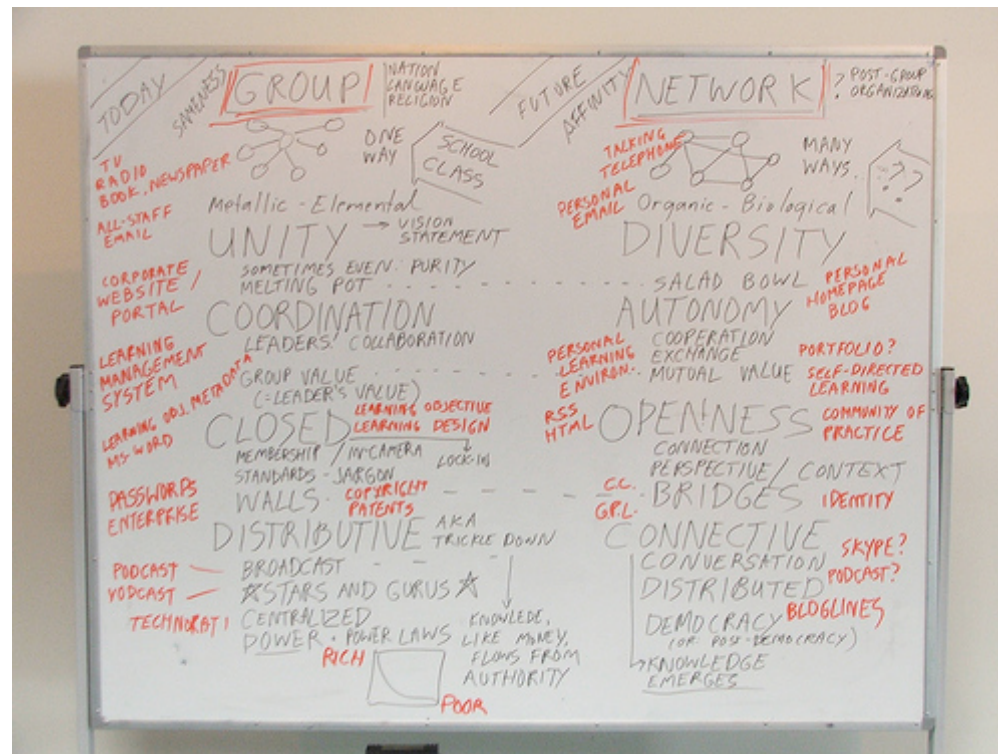 TODAY
SAMENESS
GROUP
NATION
LANGUAGE
RELIGION
TV
RADIO
BOOK. NEWSPAPER
ONE
WAY
SCHOOL
CLASS
ALL-STAFF
EMAIL
Metallic - Elemental
UNITY → VISION
STATEMENT
CORPORATE
WEBSITE /
PORTAL
SOMETIMES EVEN: PURITY
MELTING POT
COORDINATION
LEADERS! COLLABORATION
LEARNING
MANAGEMENT
SYSTEM
GROUP VALUE
(=LEADER'S VALUE)
LEARNING OBJ. METADATA
MS-WORD
CLOSED
LEARNING OBJECTIVE
LEARNING DESIGN
LOCK-IN
MEMBERSHIP /
STANDARDS - JARGON
PASSWORDS
ENTERPRISE
WALLS
COPYRIGHT
PATENTS
DISTRIBUTIVE AKA
TRICKLE DOWN
PODCAST
VODCAST
TECHNORATI
BROADCAST
☆STARS AND GURUS☆
CENTRALIZED
POWER · POWER LAWS
RICH
POOR
KNOWLEDE,
LIKE MONEY,
FLOWS FROM
AUTHORITY
FUTURE
AFFINITY
NETWORK
? POST-GROUP
TALKING
TELEPHONE
MANY
WAYS.
???
PERSONAL
EMAIL
Organic - Biological
DIVERSITY
SALAD BOWL
PERSONAL
HOMEPAGE
BLOG
AUTONOMY
COOPERATION
EXCHANGE
MUTUAL VALUE
PERSONAL
LEARNING
ENVIRON.
PORTFOLIO?
SELF-DIRECTED
LEARNING
RSS
HTML
OPENNESS
COMMUNITY OF
PRACTICE
CONNECTION
PERSPECTIVE / CONTEXT
C.C.
G.P.L.
BRIDGES
IDENTITY
CONNECTIVE
CONVERSATION
DISTRIBUTED
SKYPE?
PODCAST?
BLOGLINES
DEMOCRACY
(OR POST-DEMOCRACY)
KNOWLEDGE
EMERGES